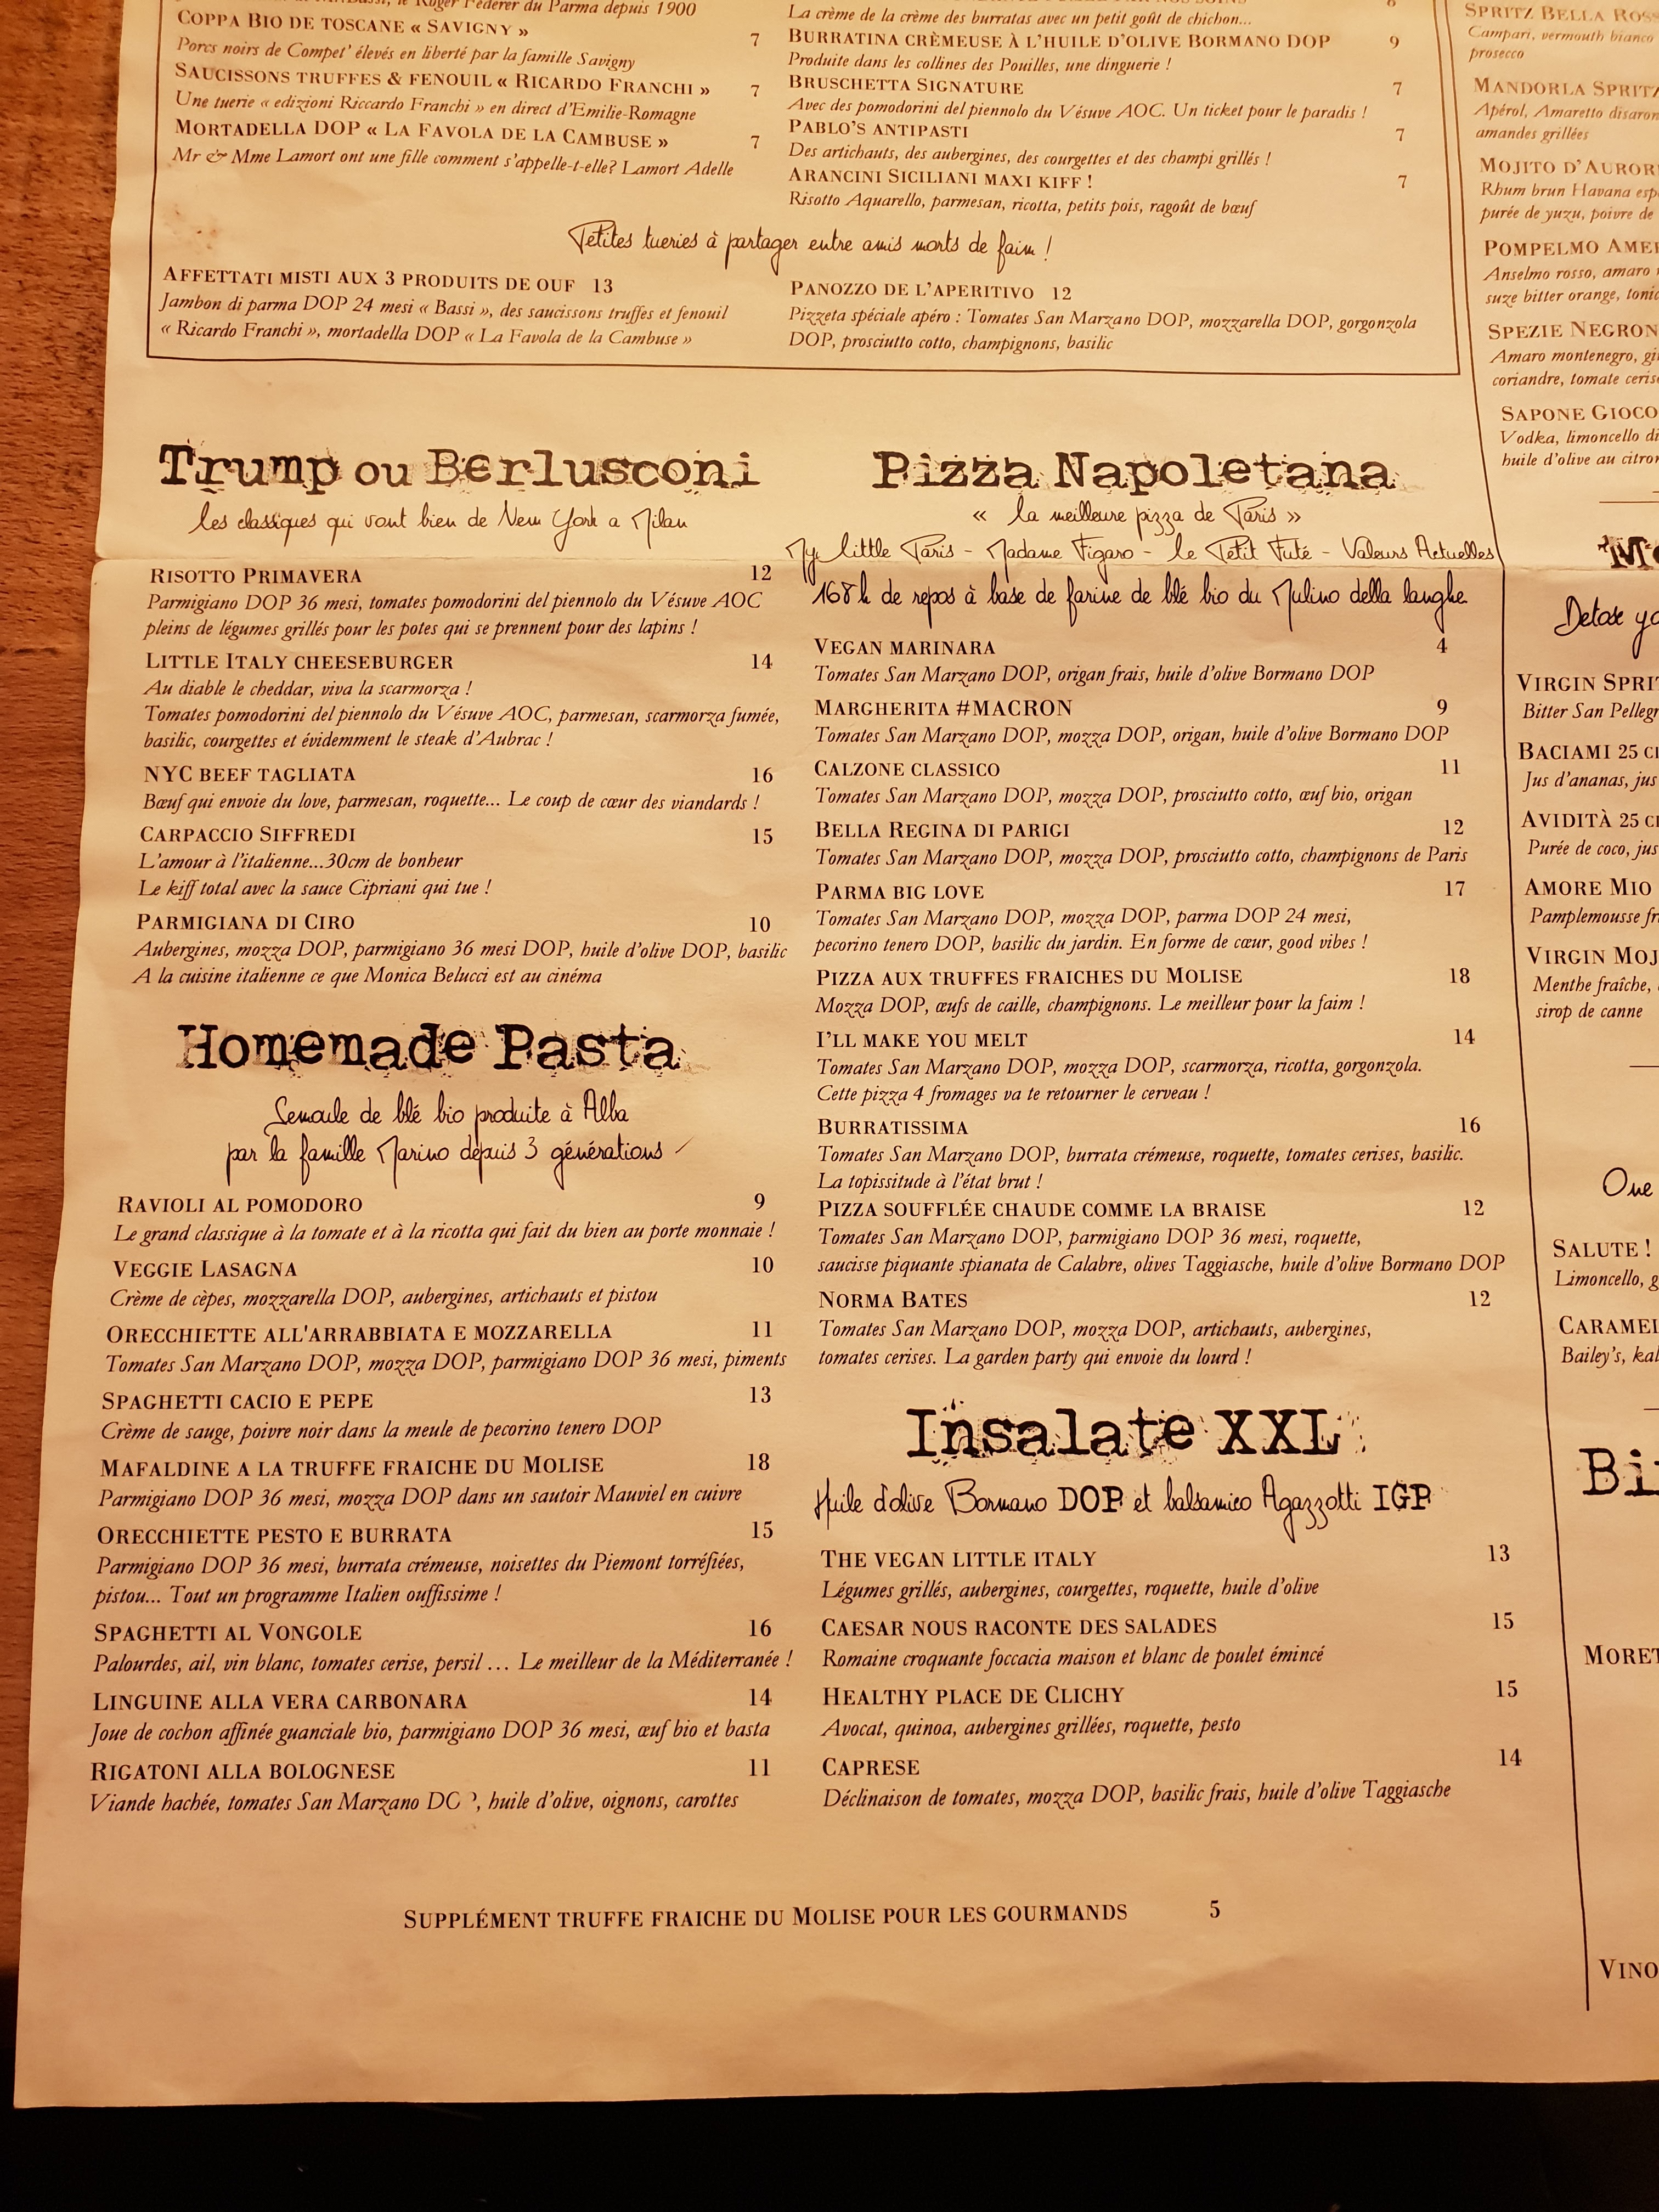 Roger Federer du Parma depuis 1900
Coppa Bio de toscane « Savigny »
Porcs noirs de Compet' élevés en liberté par la famille Savigny 7
Saucissons truffes & fenouil « Ricardo Franchi »
Une tuerie « edizioni Riccardo Franchi » en direct d'Emilie-Romagne 7
Mortadella DOP « La Favola de la Cambuse »
Mr & Mme Lamort ont une fille comment s'appelle-t-elle? Lamort Adelle 7
La crème de la crème des burratas avec un petit goût de chichon...
Burratina crèmeuse à l'huile d'olive Bormano DOP 9
Produite dans les collines des Pouilles, une dinguerie !
Bruschetta Signature 7
Avec des pomodorini del piennolo du Vésuve AOC. Un ticket pour le paradis !
Pablo's antipasti 7
Des artichauts, des aubergines, des courgettes et des champi grillés !
Arancini Siciliani maxi kiff ! 7
Risotto Aquarello, parmesan, ricotta, petits pois, ragoût de bœuf
Petites tueries à partager entre amis morts de faim !
Affettati misti aux 3 produits de ouf 13
Jambon di parma DOP 24 mesi « Bassi », des saucissons truffes et fenouil
« Ricardo Franchi », mortadella DOP « La Favola de la Cambuse »
Panozzo de l'aperitivo 12
Pizzeta spéciale apéro : Tomates San Marzano DOP, mozzarella DOP, gorgonzola
DOP, prosciutto cotto, champignons, basilic
Trump ou Berlusconi
les classiques qui vont bien de New York a Milan
Risotto Primavera 12
Parmigiano DOP 36 mesi, tomates pomodorini del piennolo du Vésuve AOC
pleins de légumes grillés pour les potes qui se prennent pour des lapins !
Little Italy cheeseburger 14
Au diable le cheddar, viva la scarmorza !
Tomates pomodorini del piennolo du Vésuve AOC, parmesan, scarmorza fumée,
basilic, courgettes et évidemment le steak d'Aubrac !
NYC beef tagliata 16
Bœuf qui envoie du love, parmesan, roquette... Le coup de cœur des viandards !
Carpaccio Siffredi 15
L'amour à l'italienne...30cm de bonheur
Le kiff total avec la sauce Cipriani qui tue !
Parmigiana di Ciro 10
Aubergines, mozza DOP, parmigiano 36 mesi DOP, huile d'olive DOP, basilic
A la cuisine italienne ce que Monica Belucci est au cinéma
Homemade Pasta
Semoule de blé bio produite à Alba
par la famille Marino depuis 3 générations
Ravioli al pomodoro 9
Le grand classique à la tomate et à la ricotta qui fait du bien au porte monnaie !
Veggie Lasagna 10
Crème de cèpes, mozzarella DOP, aubergines, artichauts et pistou
Orecchiette all'arrabbiata e mozzarella 11
Tomates San Marzano DOP, mozza DOP, parmigiano DOP 36 mesi, piments
Spaghetti cacio e pepe 13
Crème de sauge, poivre noir dans la meule de pecorino tenero DOP
Mafaldine a la truffe fraiche du Molise 18
Parmigiano DOP 36 mesi, mozza DOP dans un sautoir Mauviel en cuivre
Orecchiette pesto e burrata 15
Parmigiano DOP 36 mesi, burrata crémeuse, noisettes du Piemont torréfiées,
pistou... Tout un programme Italien ouffissime !
Spaghetti al Vongole 16
Palourdes, ail, vin blanc, tomates cerise, persil ... Le meilleur de la Méditerranée !
Linguine alla vera carbonara 14
Joue de cochon affinée guanciale bio, parmigiano DOP 36 mesi, œuf bio et basta
Rigatoni alla bolognese 11
Viande hachée, tomates San Marzano DOP, huile d'olive, oignons, carottes
Pizza Napoletana
« la meilleure pizza de Paris »
My little Paris - Madame Figaro - le Petit Futé - Valeurs Actuelles
168h de repos à base de farine de blé bio du Mulino della langhe
Vegan marinara 4
Tomates San Marzano DOP, origan frais, huile d'olive Bormano DOP
Margherita #MACRON 9
Tomates San Marzano DOP, mozza DOP, origan, huile d'olive Bormano DOP
Calzone classico 11
Tomates San Marzano DOP, mozza DOP, prosciutto cotto, œuf bio, origan
Bella Regina di parigi 12
Tomates San Marzano DOP, mozza DOP, prosciutto cotto, champignons de Paris
Parma big love 17
Tomates San Marzano DOP, mozza DOP, parma DOP 24 mesi,
pecorino tenero DOP, basilic du jardin. En forme de cœur, good vibes !
Pizza aux truffes fraiches du Molise 18
Mozza DOP, œufs de caille, champignons. Le meilleur pour la faim !
I'll make you melt 14
Tomates San Marzano DOP, mozza DOP, scarmorza, ricotta, gorgonzola.
Cette pizza 4 fromages va te retourner le cerveau !
Burratissima 16
Tomates San Marzano DOP, burrata crémeuse, roquette, tomates cerises, basilic.
La topissitude à l'état brut !
Pizza soufflée chaude comme la braise 12
Tomates San Marzano DOP, parmigiano DOP 36 mesi, roquette,
saucisse piquante spianata de Calabre, olives Taggiasche, huile d'olive Bormano DOP
Norma Bates 12
Tomates San Marzano DOP, mozza DOP, artichauts, aubergines,
tomates cerises. La garden party qui envoie du lourd !
Insalate XXL
Huile d'olive Bormano DOP et balsamico Agazzotti IGP
The vegan little italy 13
Légumes grillés, aubergines, courgettes, roquette, huile d'olive
Caesar nous raconte des salades 15
Romaine croquante foccacia maison et blanc de poulet émincé
Healthy place de Clichy 15
Avocat, quinoa, aubergines grillées, roquette, pesto
Caprese 14
Déclinaison de tomates, mozza DOP, basilic frais, huile d'olive Taggiasche
Supplément truffe fraiche du Molise pour les gourmands 5
Spritz Bella
Campari, vermouth bianco
prosecco
Mandorla Spritz
Apérol, Amaretto
amandes grillées
Mojito d'
Rhum brun Havana
purée de yuzu, poivre de
Pompelmo
Anselmo rosso, amaro
suze bitter orange,
Spezie
Amaro montenegro,
coriandre, tomate
Sapone
Vodka, limoncello
huile d'olive au
Detox
Virgin
Bitter San
Baciami 25
Jus d'ananas, jus
Avidità 25
Purée de coco, jus
Amore Mio
Pamplemousse
Virgin
Menthe fraîche,
sirop de canne
One
Salute !
Limoncello,
Bailey's,